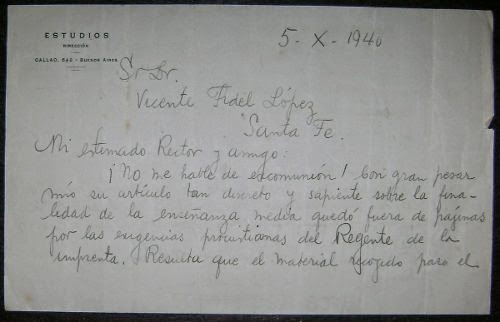 ESTUDIOS
DIRECCIÓN
CALLAO, 542 - BUENOS AIRES
5-X-1940
Sr Dr.
Vicente Fidel López
Santa Fe.
Mi estimado Rector y amigo:
¡No me hable de excomunión! Con gran pesar
mío su artículo tan discreto y sapiente sobre la fina-
lidad de la enseñanza media quedó fuera de páginas
por las exigencias procustianas del Regente de la
imprenta. Resulta que el material escogido para el